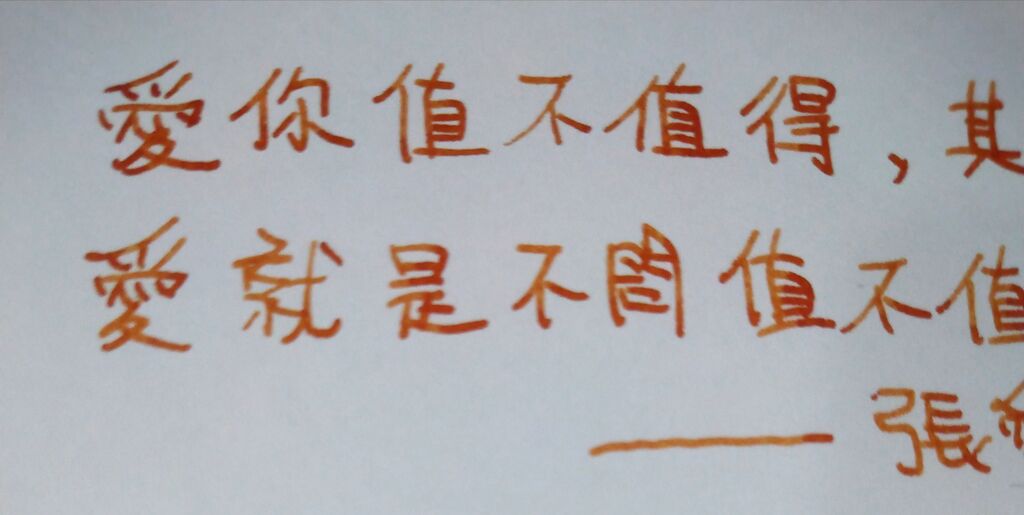 愛你值不值得,其
愛就是不問值不值
——張